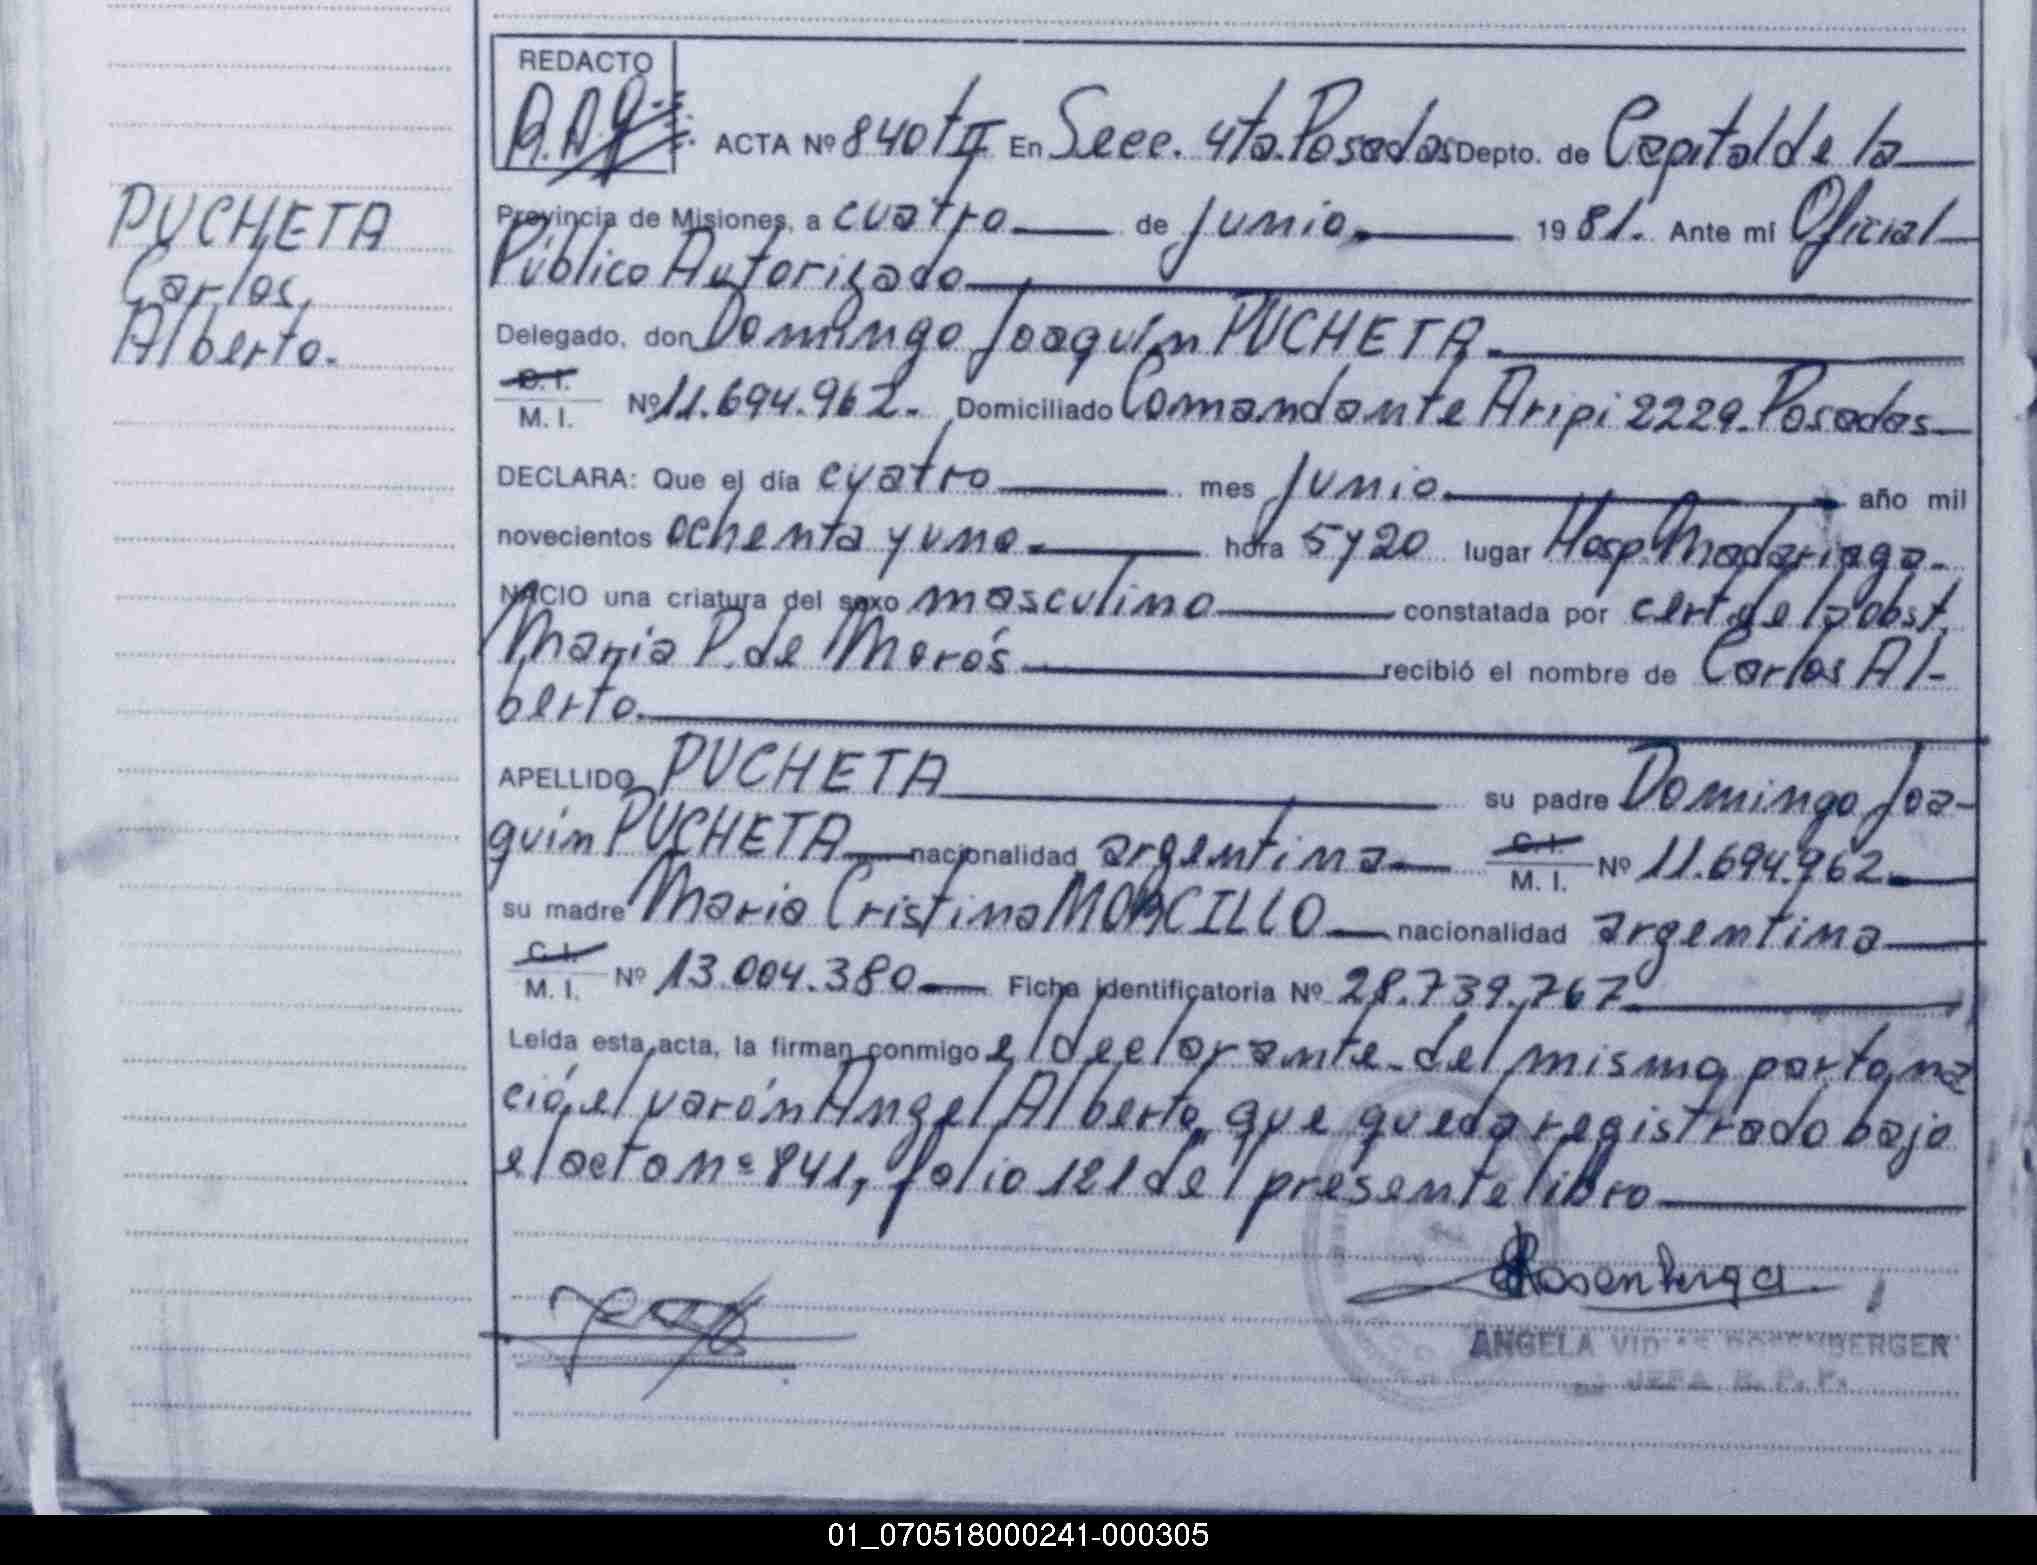 REDACTO
ACTA Nº 840 tII En Secc. 4ta. Posadas Depto. de Capital de la
Provincia de Misiones, a cuatro de junio, 1981. Ante mi Oficial
PUCHETA
Público Autorizado
Carlos,
Delegado, don Domingo Joaquín PUCHETA.
Alberto.
C. I.
M. I. Nº 11.694.962. Domiciliado Comandante Aripi 2229. Posadas
DECLARA: Que el día cuatro mes junio. año mil
novecientos ochenta y uno. hora 5 y 20 lugar Hosp. Madariaga.
NACIO una criatura del sexo masculino constatada por cert de la obst.
Maria P. de Morós recibió el nombre de Carlos Al-
berto.
APELLIDO PUCHETA su padre Domingo Joa-
quin PUCHETA nacionalidad argentina C. I. M. I. Nº 11.694.962.
su madre Maria Cristina MORCILLO nacionalidad argentina
C. I.
M. I. Nº 13.004.380 Ficha identificatoria Nº 28.739.767
Leida esta acta, la firman conmigo el declarante. del mismo parto, na
ció, el varón Angel Alberto, que queda registrado bajo
el acta nº 841, folio 121 del presente libro
ANGELA BERGER
JEFA R. P. P.
01_070518000241-000305